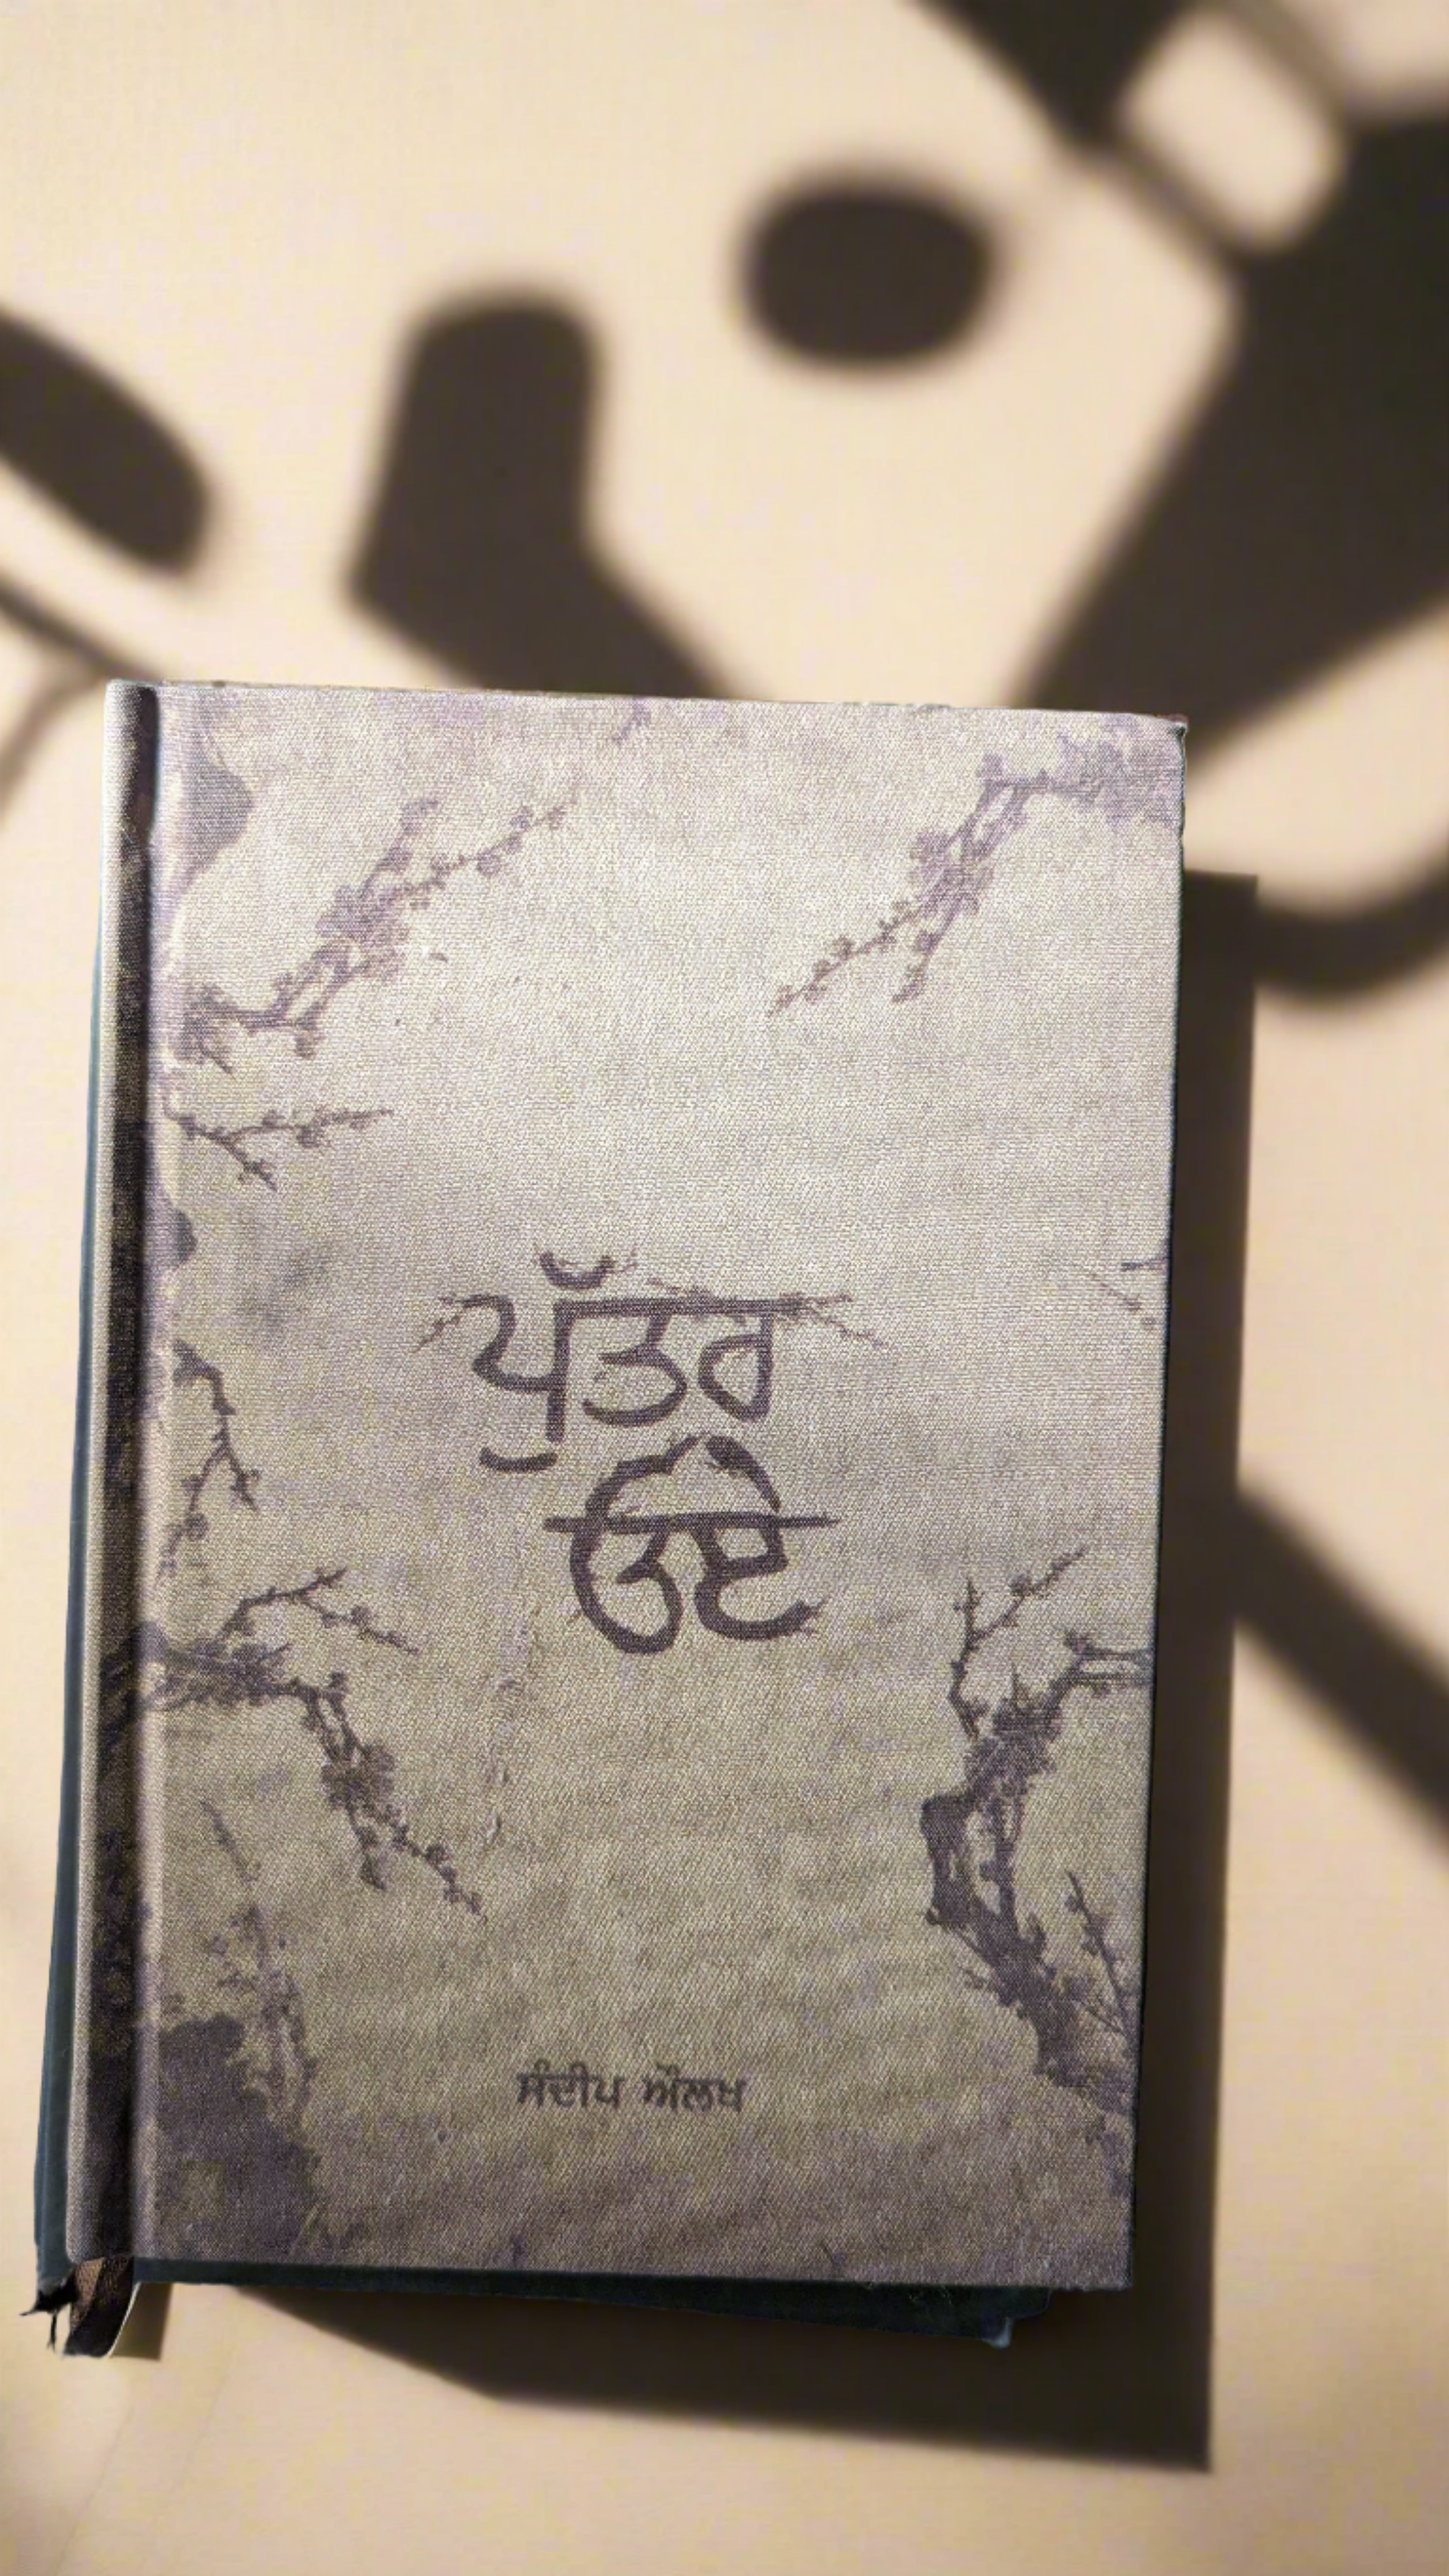 ਪੁੱਤਰ
ਓਏ
ਸੰਦੀਪ ਔਲਖ